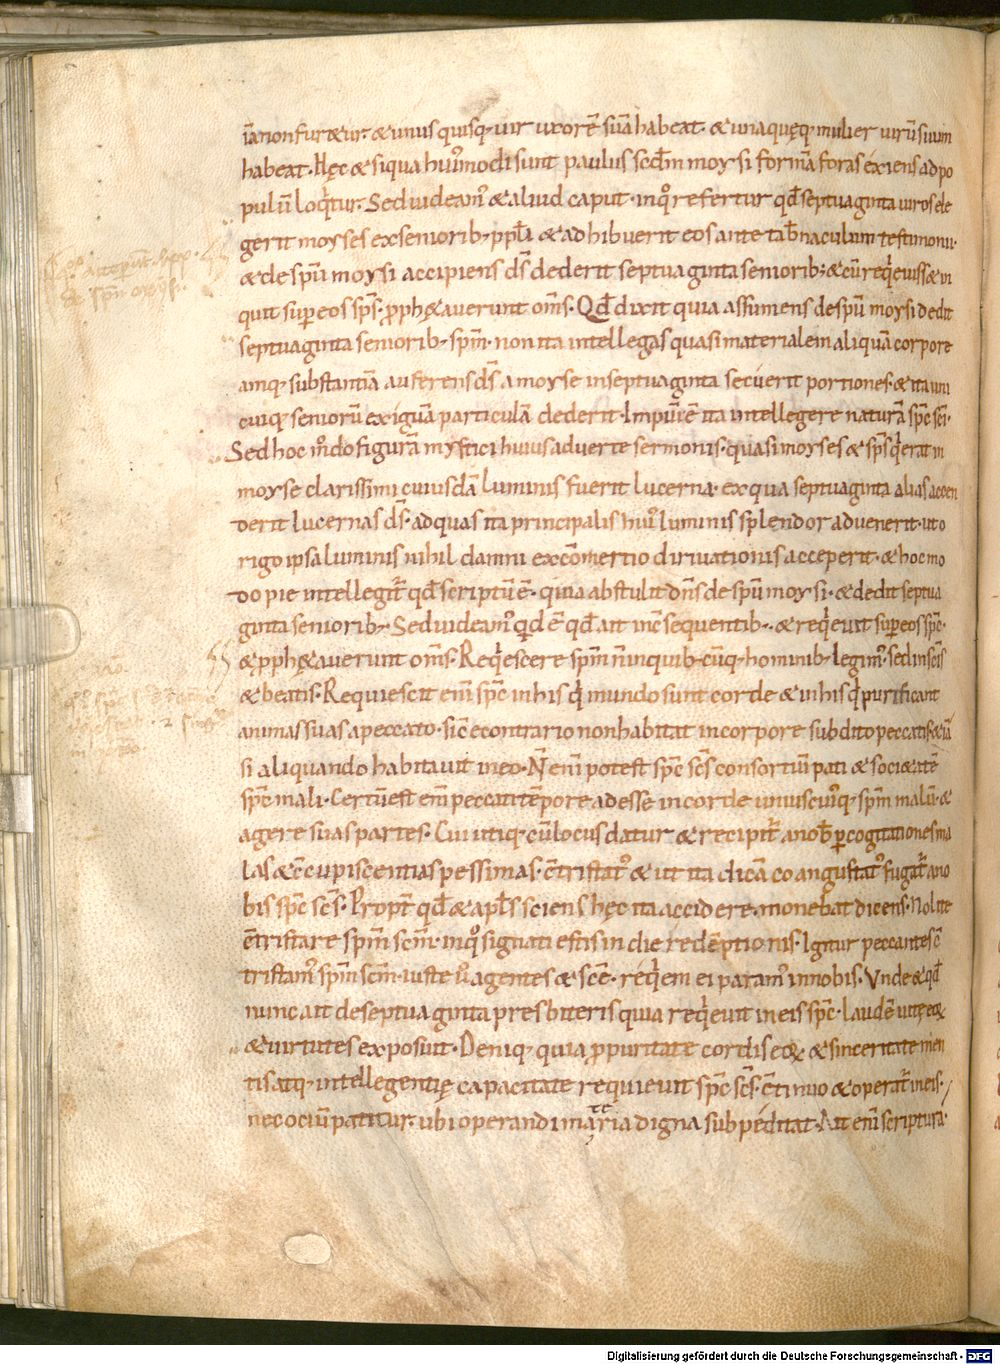 ia non furetur. & unus quisq; uir uxorē suā habeat. & una quęq; mulier uirū suum
habeat. Hęc & siqua huiꝰmodi sunt paulus scdm̄ moysi formā foras exiens ad po
pulū loq̄tur. Sed uideamꝰ & aliud caput. inq̊ refertur qd̄ septuaginta uiros ele
gerit moyses ex seniorib; ppl̄i & adhibuerit eos ante tab̄naculum testimonii.
& de spū moysi accipiens d̄s dederit septuaginta seniorib; & cū req̇euiss& in
quit sup eos sp̄s. proph&auerunt om̄s. Qd̄ dixit quia assumens de spū moysi dedit
septuaginta seniorib; sp̄m. non ita intellegas quasi materialem aliquā corpore
amq; substantiā auferens d̄s a moyse in septuaginta secuerit portiones. & ita uni
cuiq; seniorū exiguā particulā dederit. Impiū ē ita intellegere naturā sp̄c sc̄i.
Sed hoc m̊do figurā mystici huius aduerte sermonis. quasi moyses & sp̄s q̇ erat in
moyse clarissimi cuiusdā luminis fuerit lucerna. ex qua septuaginta alias accen
derit lucernas d̄s. ad quas ita principalis huiꝰ luminis splendor aduenerit. ut o
rigo ipsa luminis nihil damni ex cōmertio diriuationis acceperit. & hoc mo
do pie intellegit̄ qd̄ scriptū ē. quia abstulit dn̄s de spū moysi. & dedit septua
ginta seniorib;. Sed uideamꝰ qd ē qd̄ ait in c̄sequentib;. & req̇euit sup eos sp̄c.
& proph&auerunt om̄s. Req̇escere sp̄m n̄ in quib; cūq; hominib; legimꝰ. sed in sc̄is
& beatis. Requiescit eni̅ sp̄c in his q̇ mundo sunt corde & in his q̇ purificant
animas suas a peccato. sic̄ econtrario non habitat in corpore subdito peccatis. & iā
si aliquando habitauit in eo. N̄ eni̅ potest sp̄c sc̄s consortiū pati & soci&atē
sp̄c mali. Certū est eni̅ peccati tēpore adesse in corde uniuscuiꝰq; sp̄m malū. &
agere suas partes. Cui utiq; cū locus datur & recipit̄ a nob̄ p cogitationes ma
las & c̄cupiscentias pessimas. c̄tristatꝰ & ut ita dicā coangustatꝰ fugat̄ a no
bis sp̄c sc̄s. Propt̄ qd̄ & apl̄s sciens hęc ita accidere. monebat dicens. Nolite
c̄tristare sp̄m sc̄m. inq̊ signati estis in die redēptionis. Igitur peccantes c̄
tristamꝰ sp̄m sc̄m. iuste ů agentes & sc̄e. req̇em ei paramꝰ in nobis. Vnde & qd̄
nunc ait de septuaginta presbiteris quia req̇euit in eis sp̄c. Laudē uitę eoꝝ
& uirtutes exposuit. Deniq; quia p puritate cordis eoꝝ & sinceritate men
tis atq; intellegentię capacitate requieuit sp̄c sc̄s. c̄tinuo & operat̄ in eis.
nec ociū patitur. ubi operandi materia digna subpeditat. Ait eni̅ scriptura.
Digitalisierung gefördert durch die Deutsche Forschungsgemeinschaft - DFG